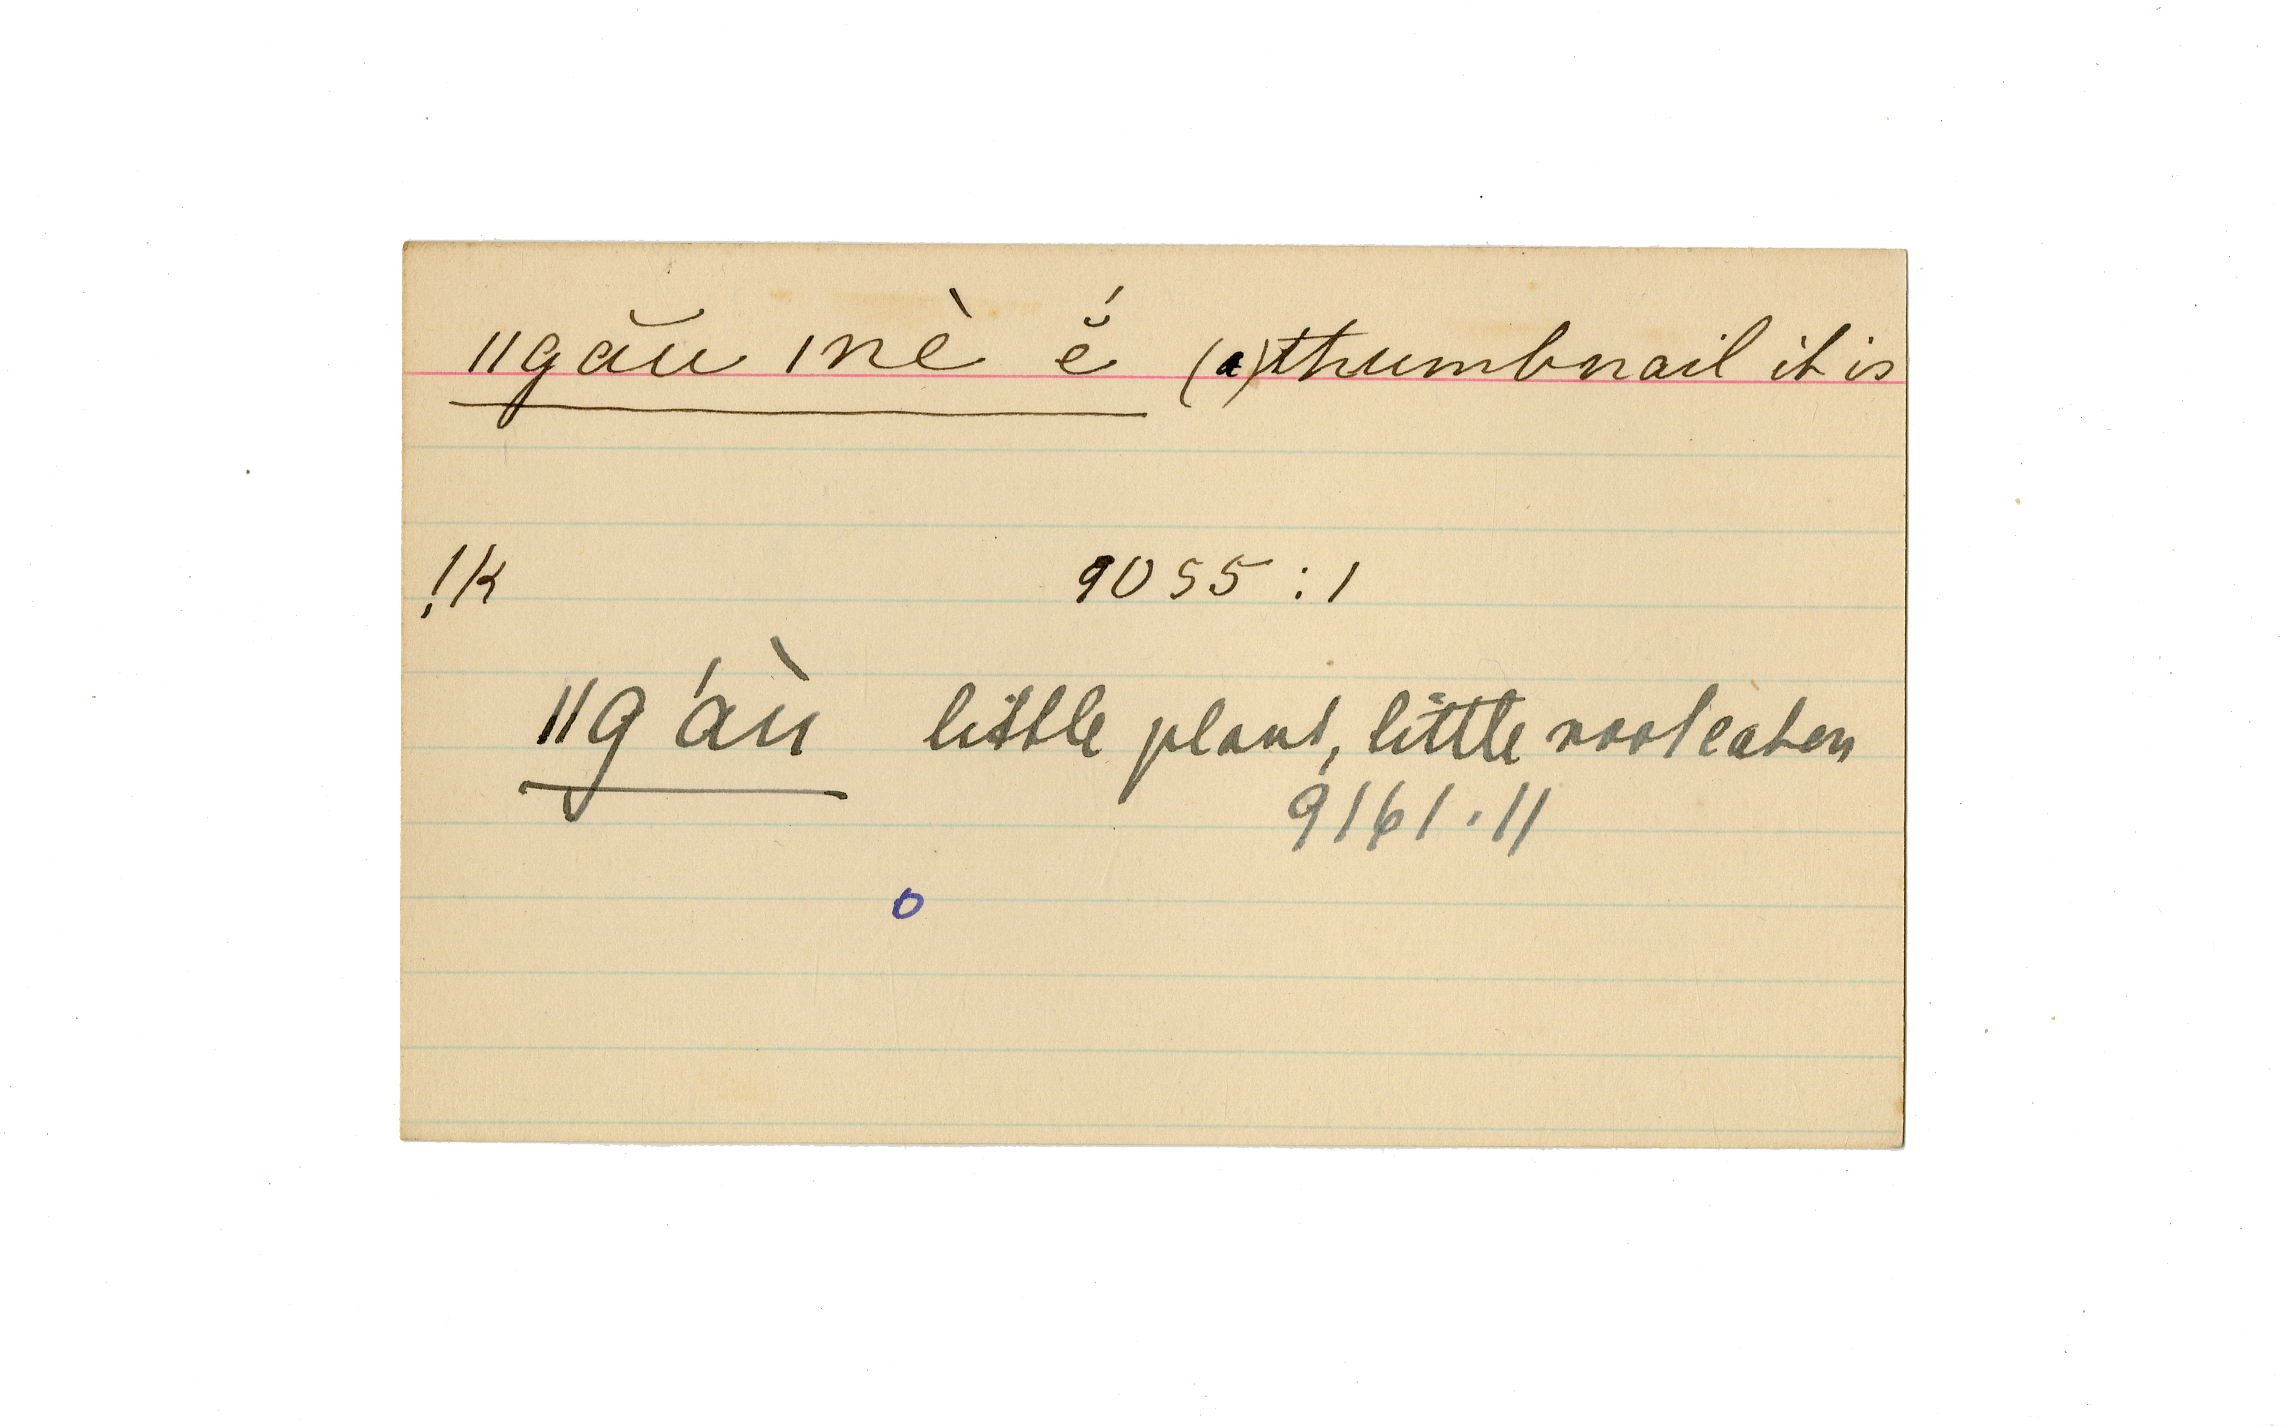 ǁgău ǀnè ĕ́ (a) thumbnail it is
!k 9055 : 1
ǁg'áù little plant, little root eaten
9161 . 11
o